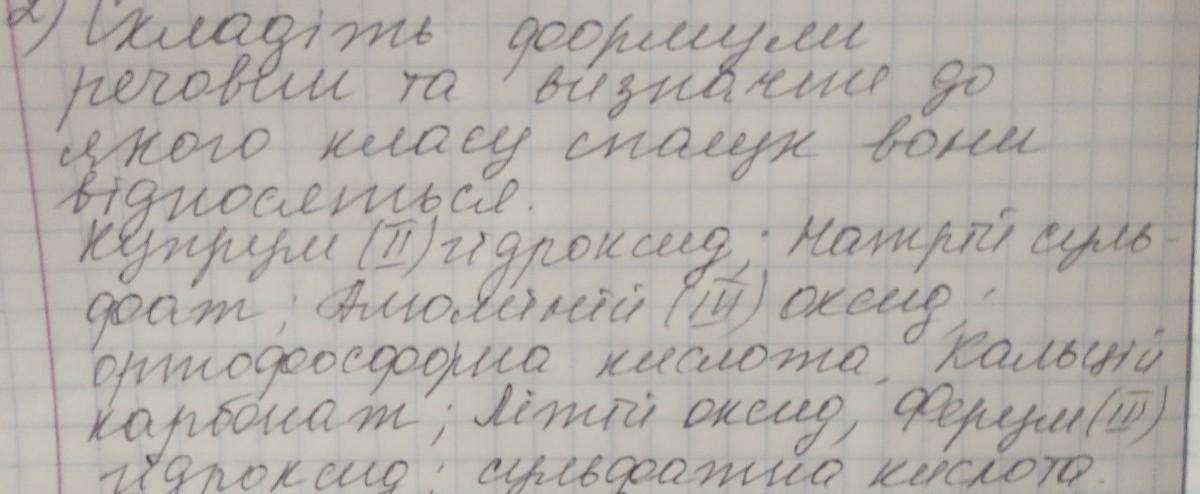 2) Складіть формули
речовин та визначте до
якого класу сполук вони
відносяться.
Купрум (II) гідроксид; Натрій суль-
фат; Алюміній (III) оксид;
ортофосфорна кислота, Кальцій
карбонат; Літій оксид, Ферум (III)
гідроксид; сульфатна кислота.